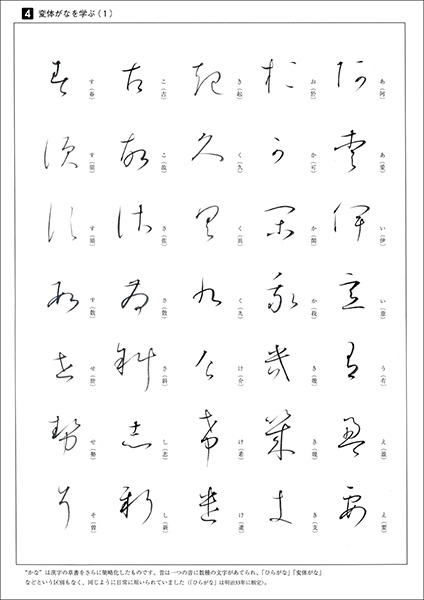 4 変体がなを学ぶ（1）
あ（阿）
あ（愛）
い（伊）
い（意）
う（有）
え（盈）
え（要）
お（於）
か（可）
か（閑）
か（我）
き（幾）
き
き（支）
き（起）
く（久）
く（具）
く（九）
け（介）
け（希）
け（遣）
こ（古）
こ（故）
さ（佐）
さ（散）
さ（斜）
し（志）
し（新）
す（春）
す
す（須）
す（数）
せ（世）
せ（勢）
そ（曽）
“かな”は漢字の草書をさらに簡略化したものです。音は一つの音に数種の文字があてられ、「ひらがな」「変体がな」
などという区別もなく、同じように日常に用いられていました（「ひらがな」は明治33年に制定）。